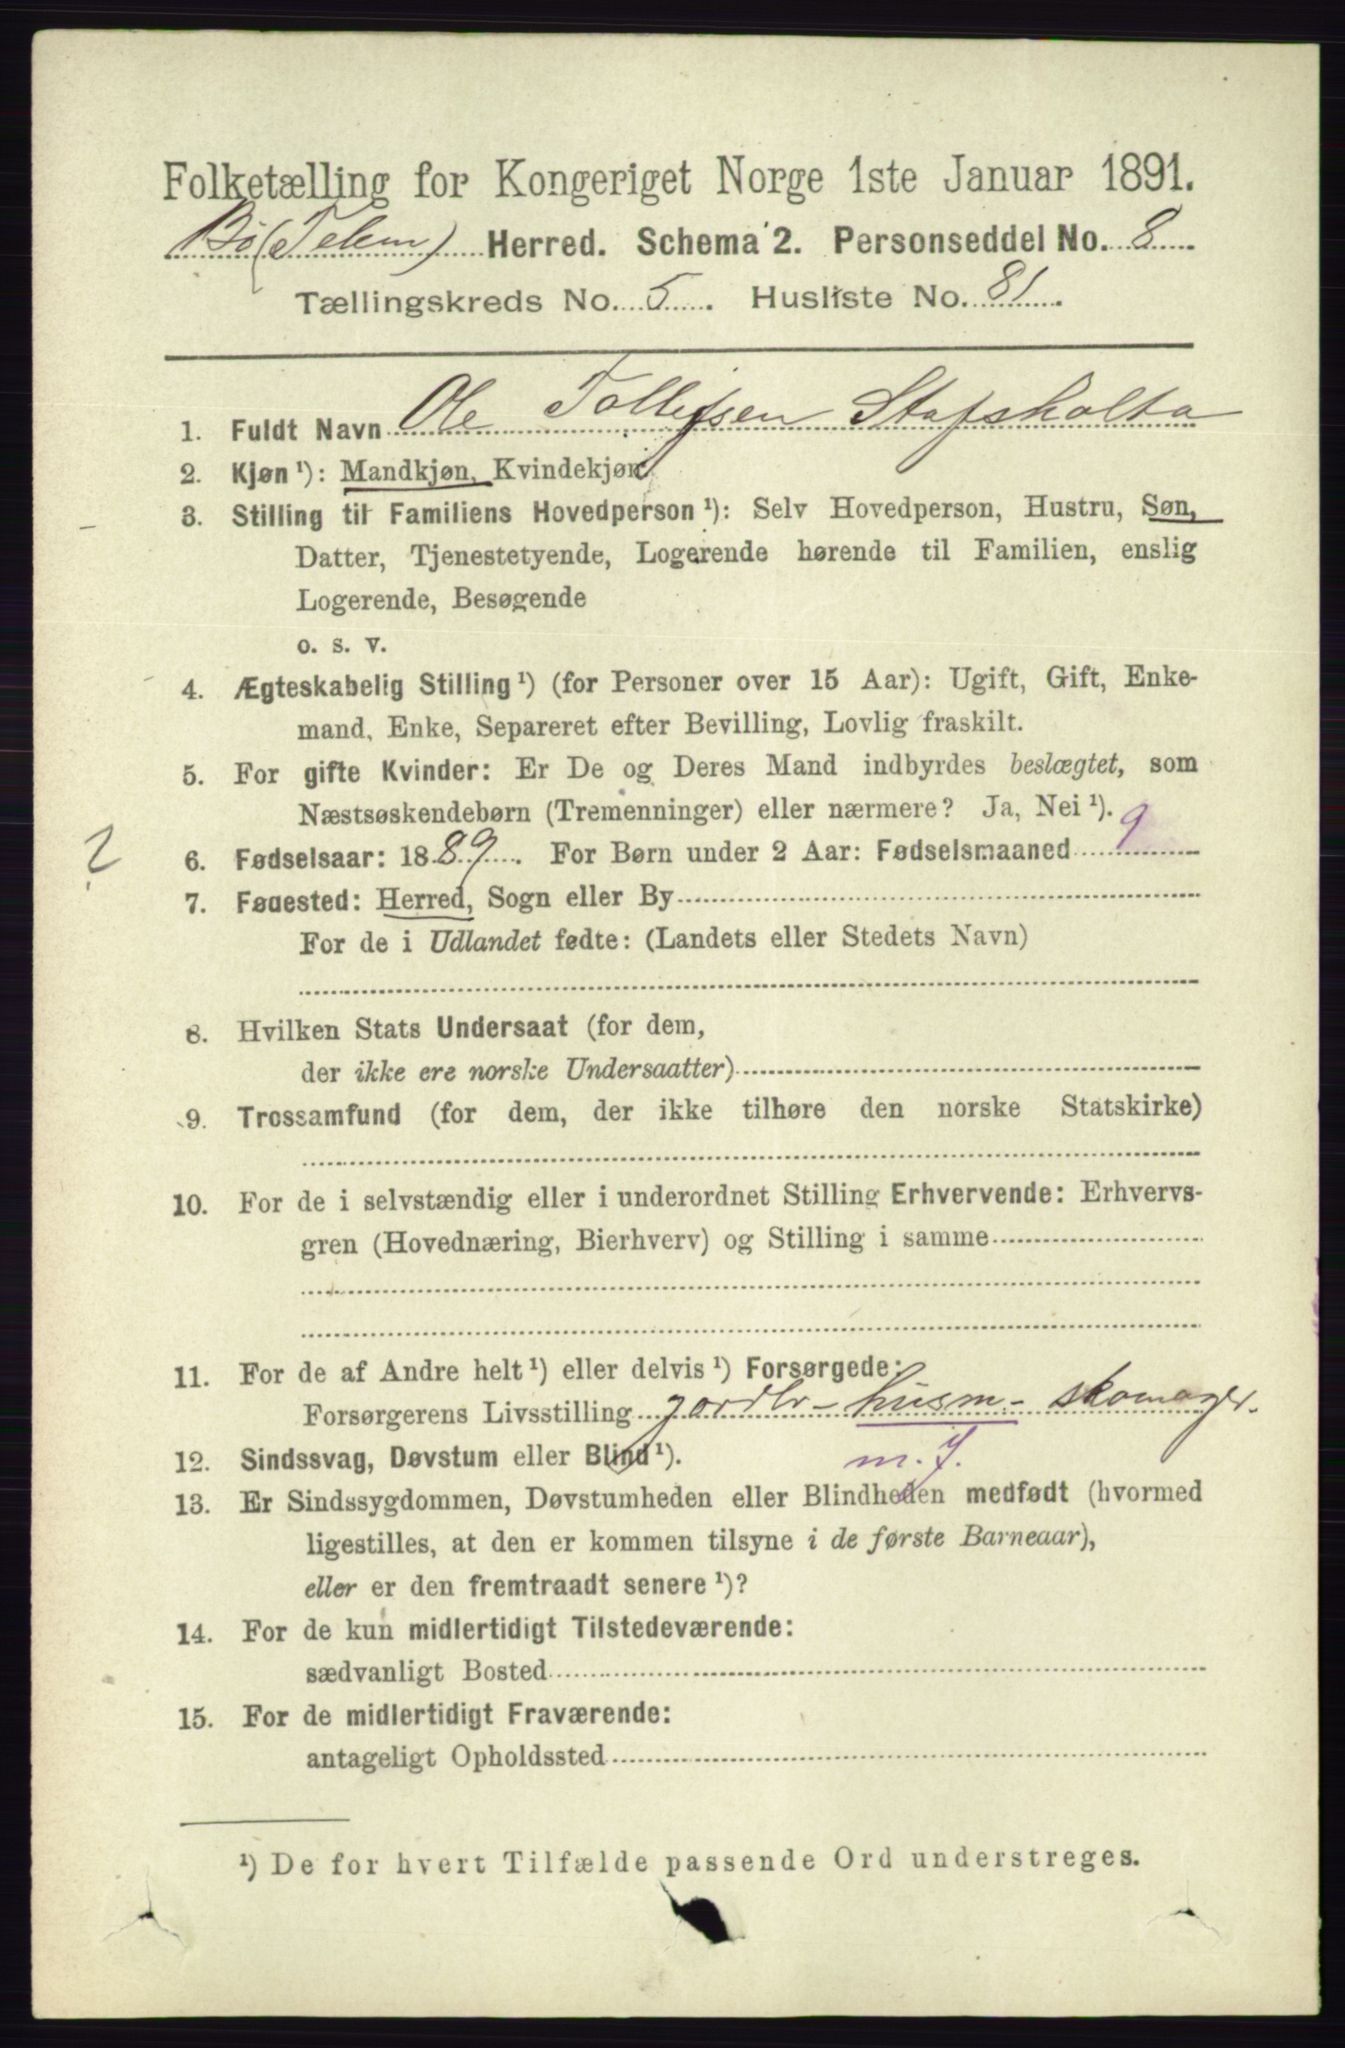 Folketælling for Kongeriget Norge 1ste Januar 1891.
Bø (Telem) Herred. Schema 2. Personseddel No. 8
Tællingskreds No. 5. Husliste No. 81.
1. Fuldt Navn Ole Tollefsen Stafsholta
2. Kjøn ¹): Mandkjøn, Kvindekjøn
3. Stilling til Familiens Hovedperson ¹): Selv Hovedperson, Hustru, Søn,
Datter, Tjenestetyende, Logerende hørende til Familien, enslig
Logerende, Besøgende
o. s. v.
4. Ægteskabelig Stilling ¹) (for Personer over 15 Aar): Ugift, Gift, Enke-
mand, Enke, Separeret efter Bevilling, Lovlig fraskilt.
5. For gifte Kvinder: Er De og Deres Mand indbyrdes beslægtet, som
Næstsøskendebørn (Tremenninger) eller nærmere? Ja, Nei ¹).
? 6. Fødselsaar: 1889. For Børn under 2 Aar: Fødselsmaaned 9
7. Fødested: Herred, Sogn eller By
For de i Udlandet fødte: (Landets eller Stedets Navn)
8. Hvilken Stats Undersaat (for dem,
der ikke ere norske Undersaatter)
9. Trossamfund (for dem, der ikke tilhøre den norske Statskirke)
10. For de i selvstændig eller i underordnet Stilling Erhvervende: Erhvervs-
gren (Hovednæring, Bierhverv) og Stilling i samme
11. For de af Andre helt ¹) eller delvis ¹) Forsørgede:
Forsørgerens Livsstilling jordbr- husm- skomager.
12. Sindssvag, Døvstum eller Blind ¹). m. J.
13. Er Sindssygdommen, Døvstumheden eller Blindheden medfødt (hvormed
ligestilles, at den er kommen tilsyne i de første Barneaar),
eller er den fremtraadt senere ¹)?
14. For de kun midlertidigt Tilstedeværende:
sædvanligt Bosted
15. For de midlertidigt Fraværende:
antageligt Opholdssted
¹) De for hvert Tilfælde passende Ord understreges.